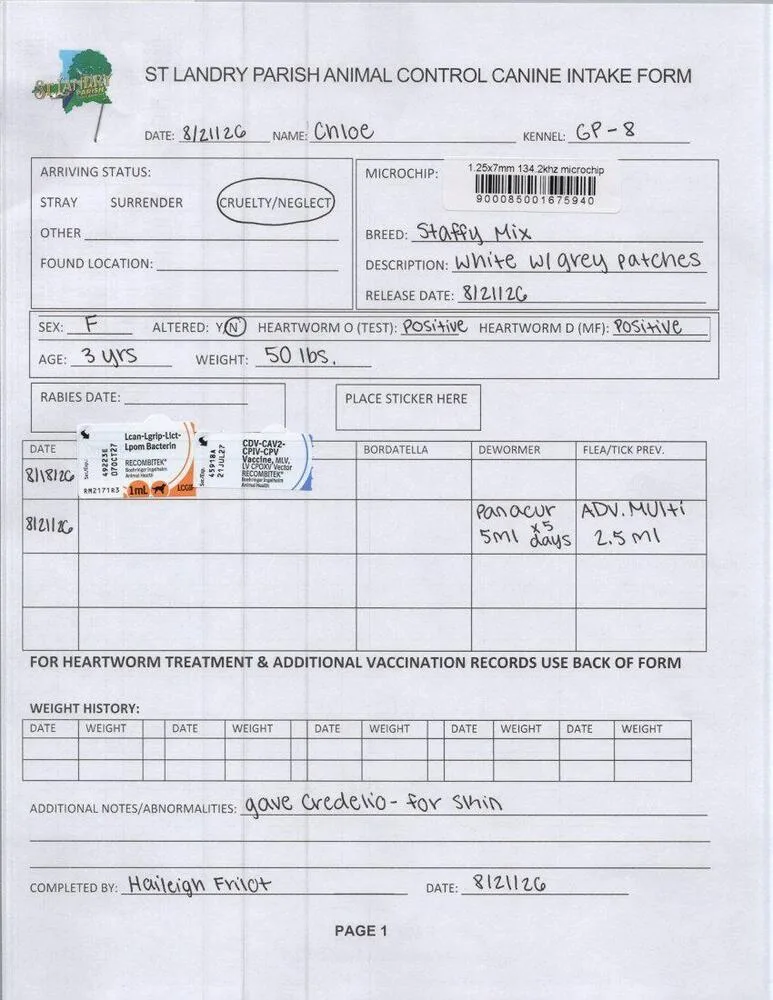 ST LANDRY PARISH
ST LANDRY PARISH ANIMAL CONTROL CANINE INTAKE FORM
DATE: 8/21/26 NAME: Chloe KENNEL: GP-8
ARRIVING STATUS:
STRAY SURRENDER CRUELTY/NEGLECT
OTHER
FOUND LOCATION:
MICROCHIP: 1.25x7mm 134.2khz microchip
900085001675940
BREED: Staffy Mix
DESCRIPTION: White w/ grey patches
RELEASE DATE: 8/21/26
SEX: F ALTERED: Y/N HEARTWORM O (TEST): Positive HEARTWORM D (MF): Positive
AGE: 3 yrs WEIGHT: 50 lbs.
RABIES DATE:
PLACE STICKER HERE
DATE BORDATELLA DEWORMER FLEA/TICK PREV.
8/18/26
Lcan-Lgrip-Lict-
Lpom Bacterin
RECOMBITEK®
Boehringer Ingelheim
Animal Health
Ser/Exp.
49223E
07OCT27
RM2171R3 1mL LCGIP
CDV-CAV2-
CPIV-CPV
Vaccine, MLV,
LV CPOXV Vector
RECOMBITEK®
Boehringer Ingelheim
Animal Health
Ser/Exp.
45918A
21JUL27
8/21/26 Panacur ADV. Multi
5ml x5 days 2.5 ml
FOR HEARTWORM TREATMENT & ADDITIONAL VACCINATION RECORDS USE BACK OF FORM
WEIGHT HISTORY:
DATE WEIGHT DATE WEIGHT DATE WEIGHT DATE WEIGHT DATE WEIGHT
ADDITIONAL NOTES/ABNORMALITIES: gave Credelio - for skin
COMPLETED BY: Haileigh Frilot DATE: 8/21/26
PAGE 1